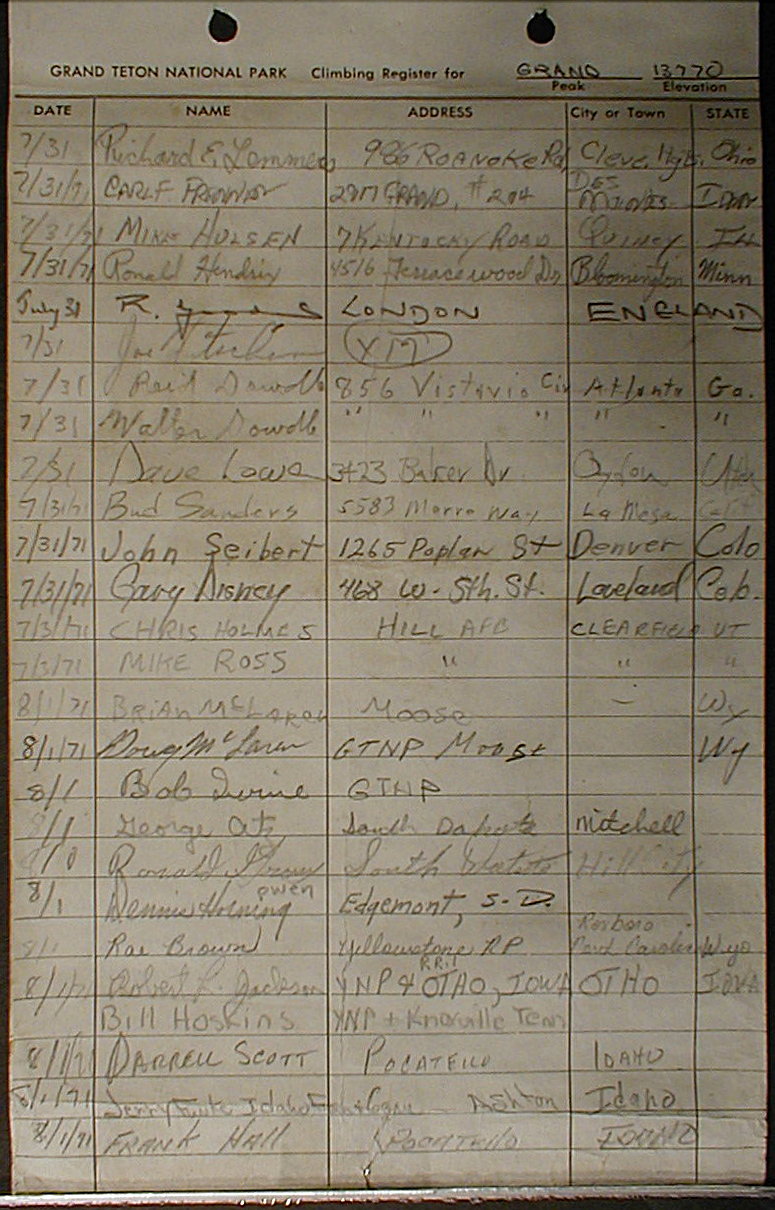 GRAND TETON NATIONAL PARK Climbing Register for GRAND 13770
Peak Elevation
DATE NAME ADDRESS City or Town STATE
7/31 Richard E. 986 ROANOKE Rd, Cleve. Hgts. Ohio
7/31/71 CARL F GRAND, # 204 DES MOINES IOWA
7/31/71 MIKE HULSEN 7 KENTUCKY ROAD QUINCY ILL
7/31/71 Ronald Hendrix 4516 Terracewood Dr, Bloomington Minn
July 31 R. LONDON ENGLAND
7/31 Joe
7/31 Reid Dowdle 856 Vistavia Cir Atlanta Ga.
7/31 Walter Dowdle " " " " "
7/31 Dave Lowe 3423 Baker Dr. Ogden Utah
7/31/71 Bud Sanders 5583 Morro Way La Mesa Calif
7/31/71 John Seibert 1265 Poplar St Denver Colo
7/31/71 Gary Disney 468 W. 5th. St. Loveland Colo.
7/31/71 CHRIS HOLMES HILL AFB CLEARFIELD UT
7/31/71 MIKE ROSS " " "
8/1/71 BRIAN McLAREN MOOSE - Wy
8/1/71 Doug McLaren GTNP Moose Wy
8/1 Bob Irvine GTNP
8/1 George South Dakota Mitchell
8/1 Ronald South Dakota Hill City
8/1 Dennis Owen Horning Edgemont, S.D.
8/1 Rae Brown Yellowstone Wyo
8/1/71 Robert L. Jackson YNP & R.R.1 OTHO, IOWA OTHO IOWA
Bill Hoskins YNP + Knoxville Tenn
8/1/71 DARRELL SCOTT POCATELLO IDAHO
8/1/71 Jerry Idaho Fish & Game Ashton Idaho
8/1/71 FRANK Hall POCATELLO IDAHO